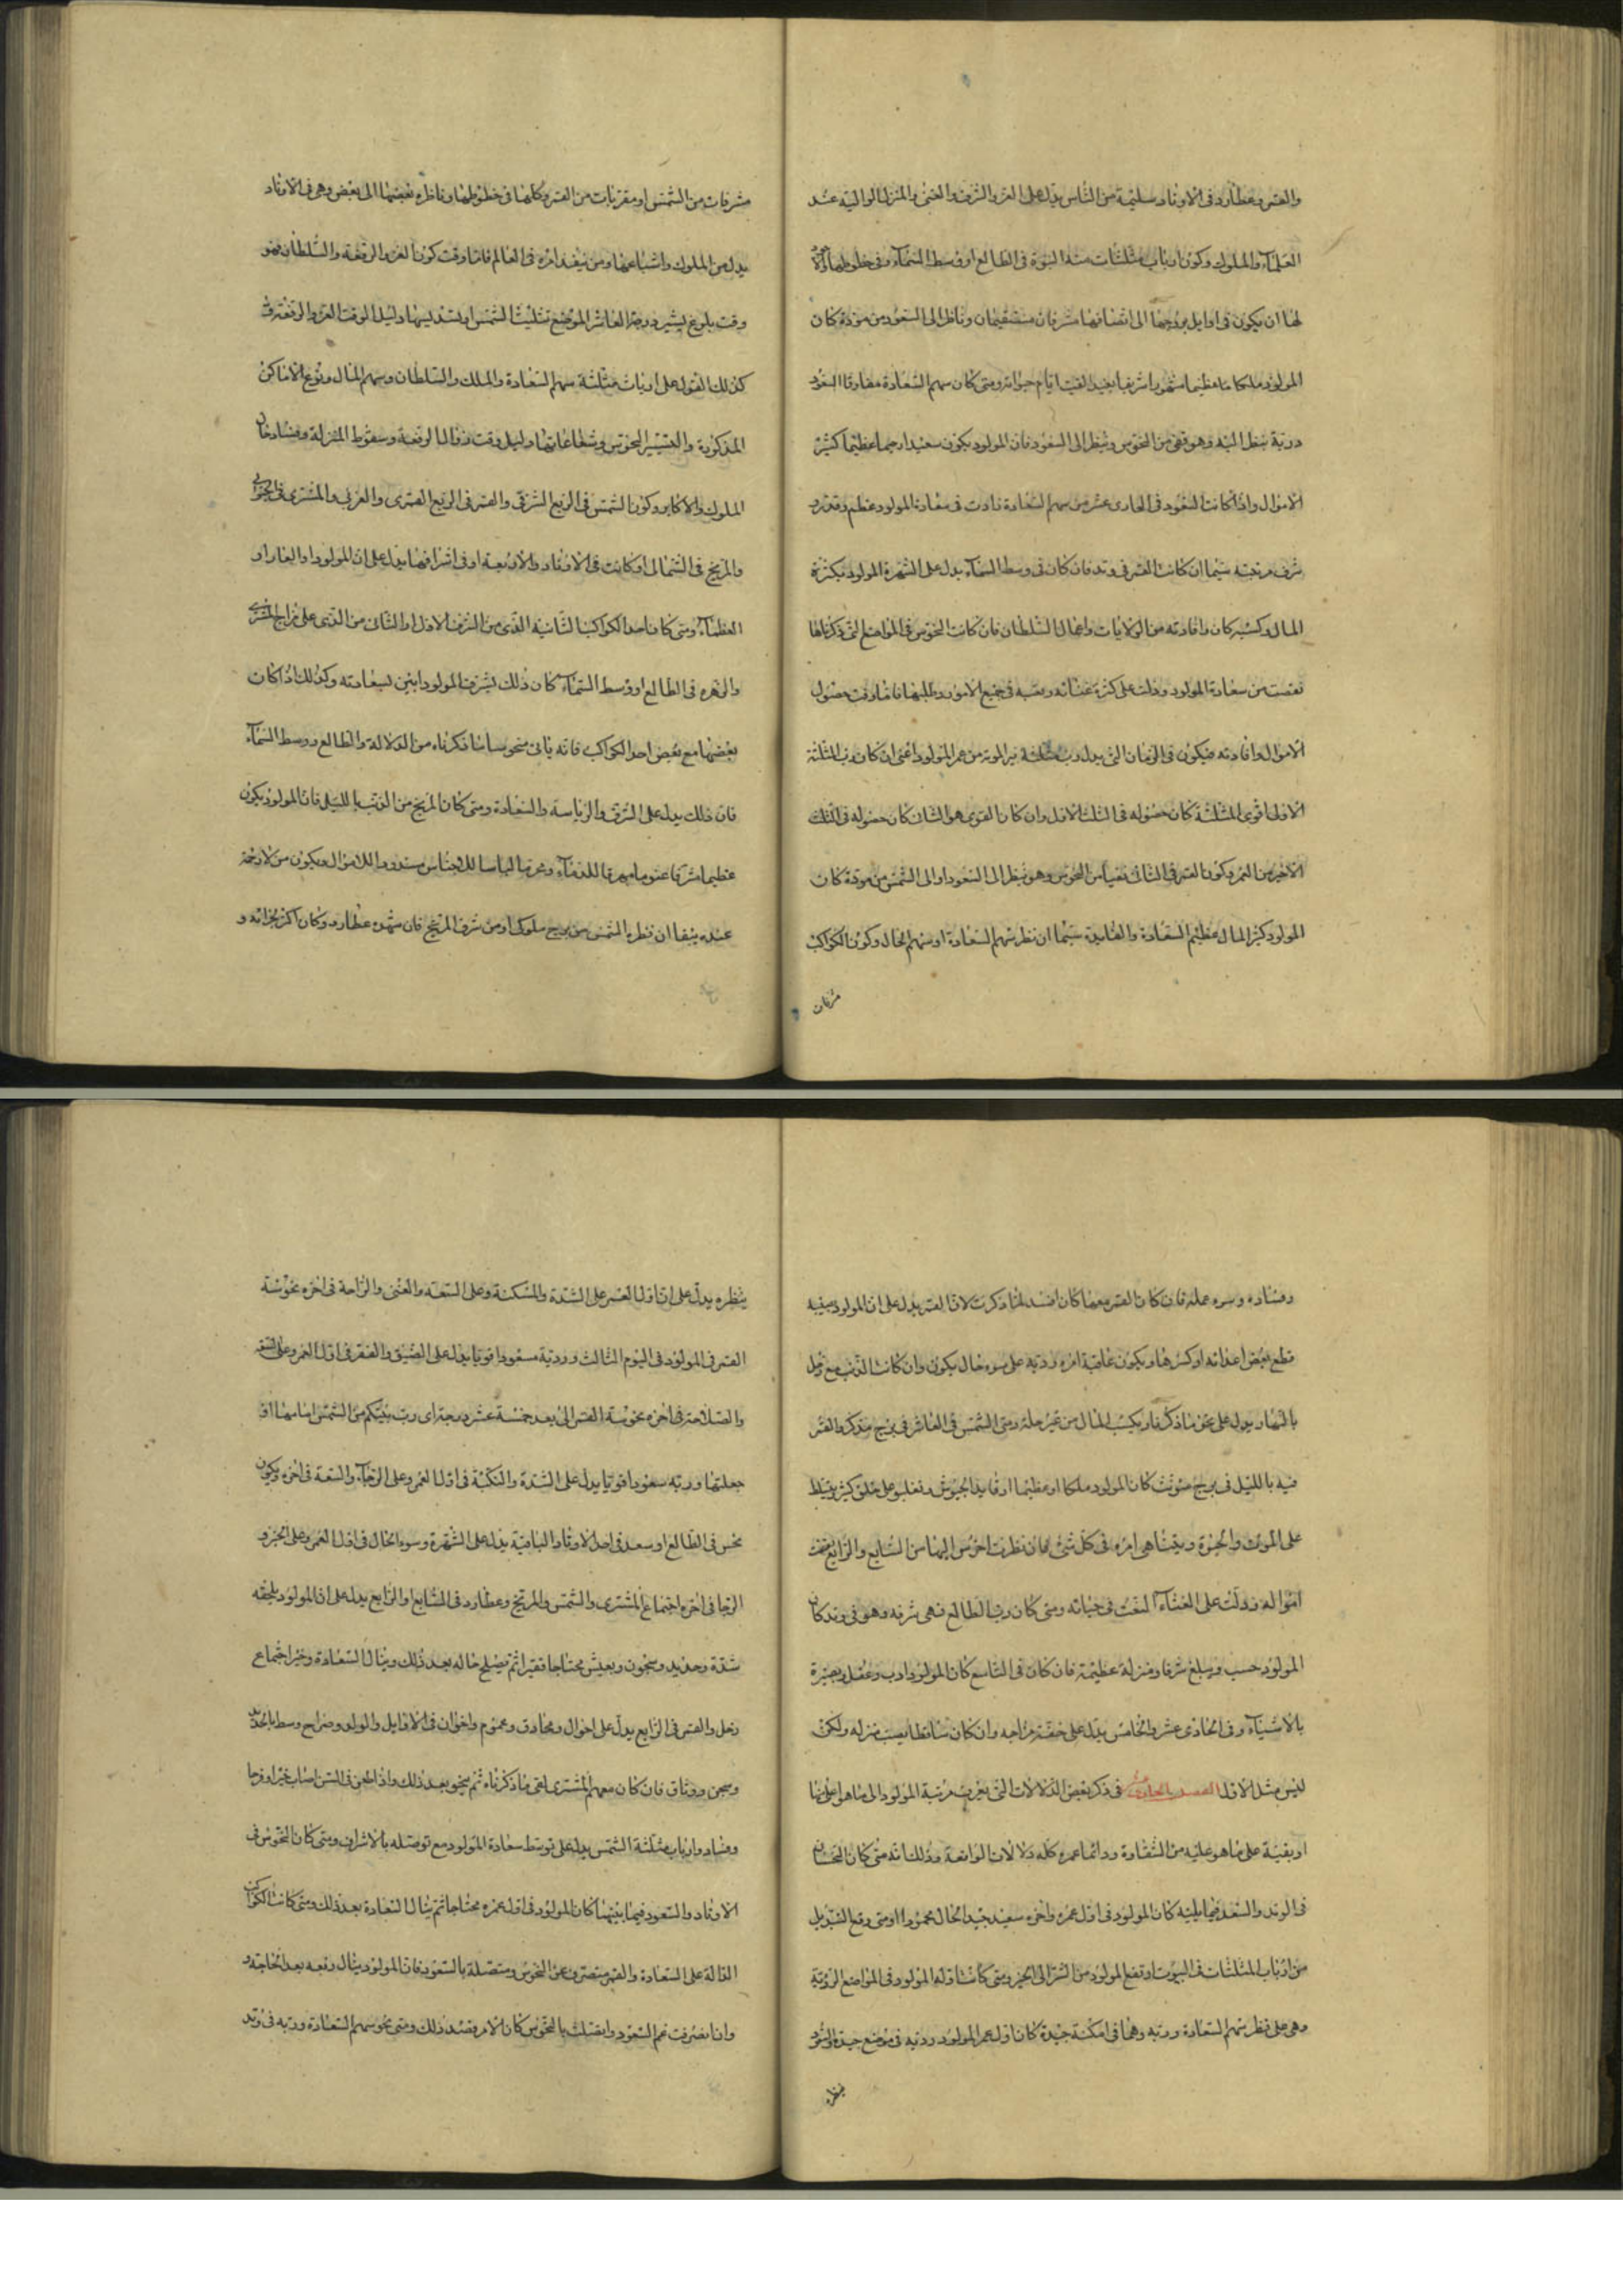 والقمر وعطارد فى الاوتاد سليمة من الناس يدل على العز والشرف والغنى والمنزلة الوالية عند
العلماء والملوك وكون ارباب مثلثات هذه النبوة فى الطالع او وسط السماء وفى حظوظها
لها ان يكون فى اوايل بروجها الى انصافها شرقيان مستقيمان وناظر الى السعود من مودة كان
المولود ملكا عظيما مشهورا شريفا بعيد الصيت ايام حياته ومتى كان سهم السعادة مقارنا السعود
وربه ينظر اليه وهو نقى من النحوس وينظر الى السعود فان المولود يكون سعيدا رحيما عظيما كثير
الاموال واذا كانت السعود فى الحادى عشر من سهم السعادة زادت فى سعادة المولود عظم وقدره و
شرف مرتبته سيما ان كانت القمر فى وتد فان كان فى وسط السماء يدل على الشهرة المولود بكثرة
المال وكسبه كان وافادته من الولايات واعمال السلطان فان كانت النحوس فى المواضع التى ذكرناها
نقصت من سعادة المولود ودلت على كثرة عنائه وتعبه فى جميع الامور وطلبها فاما وقت حصول
الاموال وافادته فيكون فى الزمان التى يدل رب مثلثة نير النوبة من عمر المولود اعنى ان كان رب المثلثة
الاولى اقوى المثلثة كان حصوله فى الثلث الاول وان كان القوى هو الثانى كان حصوله فى الثلث
الاخير من العمر وكون القمر فى الثانى نقيا من النحوس وهو ينظر الى السعود او الى الشمس من مودة كان
المولود كثير المال عظيم السعادة والفايدة سيما ان نظر سهم السعادة او سهم المال وكون الكواكب
شرقيات من الشمس او مقربات من القمر وكلها فى حظوظها وناظره بعضها الى بعض وهى فى الاوتاد
يدل من الملوك واشباعها ومن ينفذ امره فى العالم فاما وقت كون العز والرفعة والسلطان فهو
وقت بلوغ تسيير درجة العاشر الموضع تثليث الشمس او تسديسها دليل الوقت العز والرفعة و
كذلك القول على ارباب مثلثة سهم السعادة والملك والسلطان وسهم المال ونوع الاماكن
المذكورة والتسيير النحوس وشعاعاتها دليل وقت زوال الرفعة وسقوط المنزلة وفساد حال
الملوك والاكابر وكون الشمس فى الربع الشرقى والقمر فى الربع القمرى والغربى والمشترى فى
والمريخ فى الشمالى او كانت فى الاوتاد والاربعة او فى اشرافها يدل على ان المولود او
العظماء ومتى كان احد الكواكب الثانية الذى من الشرف الاول او الثانى من الذى على مزاج المشترى
والزهره فى الطالع او وسط السماء كان ذلك يشرف المولود ابين لسعادته وكذلك اذا كان
بعضها مع بعض احد الكواكب فانه ياتى منحوسا ما ذكرناه من الدلالة والطالع ووسط السماء
فان ذلك يدل على الشرف والرياسة والسعادة ومتى كان المريخ من الذنب بالليل فان المولود يكون
عظيما شريفا للاجناس للاموال ويكون من
عنده ان نظره الشمس من برج ملوك او من شرف المريخ فان شهده عطارد وكان اكثر و
شرقيات
وفساده وسوء عمله فان كان القمر معها كان افسد لما ذكرت لان القمر يدل على ان المولود يصيبه
قطع بعض اعضائه او كسرها ويكون عاقبة امره ردية على سوء حال يكون وان كانت الذنب مع زحل
بالنهار يدل على نحو ما ذكرنا ويكسب المال من غير حله ومتى الشمس فى العاشر فى برج مذكر والقمر
فيه بالليل فى برج مؤنث كان المولود ملكا او عظيما او قايد الجيوش ويغلب على خلق كثير ويتسلط
على الموت والحيوة ويتناهى امره فى كل شئ فان نظرت اخرس اليها من السابع والرابع نقصت
امواله ودلت على العناء والتعب فى حياته ومتى كان رب الطالع فى شرفه وهو فى وتد كان
المولود حسب ويبلغ شرفا ومنزلة عظيمة فان كان فى التاسع كان المولود ادب وعقل وبصيرة
بالاشياء وفى الحادى عشر والخامس يدل على خفة مزاجه وان كان ساقطا يصيب منزله ولكن
ليس مثل الاول الفصل الحادى عشر فى ذكر بعض الدلالات التى يعرف مرتبة المولود الى ما هو اعلى منها
او بقية على ما هو عليه من الشقاوة ودائما عمره كله دلالات الواقعة وذلك انه متى كان النحسان
فى الوتد والسعد فيما يليه كان المولود فى اول عمره واخره سعيد جيد الحال محمودا ومتى وقع التبديل
من ارباب المثلثات فى البيوت اوتفع المولود من الشر الى الخير ومتى كانت ادلة المولود فى المواضع الردية
وهى على نظر سهم السعادة وربه وهما فى امكنة جيدة كان اول عمر المولود ردية فى موضع جيد والسعود
ينظره يدل على ان اول العمر على الشدة والمسكنة وعلى السعة والغنى والراحة فى اخره نحوسة
القمر فى المولود فى اليوم الثالث وربه مسعودا قويا يدل على الضيق والفقر فى اول العمر وعلى السعة
والصلاحة فى اخره نحوسة القمر الى بعد خمسة عشر درجة اى رب بينكم من الشمس امامها او
جعلتها وربه سعودا قويا يدل على الشدة والنكبة فى اول العمر وعلى الرخاء والسعة فى اخره ويكون
نحس فى الطالع او سعد فى احد الاوتاد الباقية يدل على الشهرة وسوء الحال فى اول العمر وعلى الخير و
الرجا فى اخره اجتماع المشترى والشمس والمريخ وعطارد فى السابع او الرابع يدل على ان المولود يلحقه
شدة وحديد وسجون ويعيش محتاجا فقيرا ثم يصلح حاله بعد ذلك وينال السعادة وخير اجتماع
زحل والقمر فى الرابع يدل على احوال ومخاوف وغموم واحزان فى الاوايل والولد
وسجن ووثاق فان كان معهم المشترى لقى ما ذكرناه ثم ينجو بعد ذلك واذا طعن فى السن اصاب خيرا وفرحا
وفساد وارباب مثلثة الشمس يدل على توسط سعادة المولود مع توصله بالاشراف ومتى كان النحوس فى
الاوتاد والسعود فيما بينهما كان المولود فى اول عمره محتاجا ثم ينال السعادة بعد ذلك ومتى كانت الكواكب
الدالة على السعادة والقمر منصرف عن النحوس ومتصلة بالسعود فان المولود ينال رفعه بعد الحاجة و
وان انصرفت عن السعود واتصلت بالنحوس كان الامر بضد ذلك ومتى نحوس سهم السعادة وربه فى وتد
ينظره